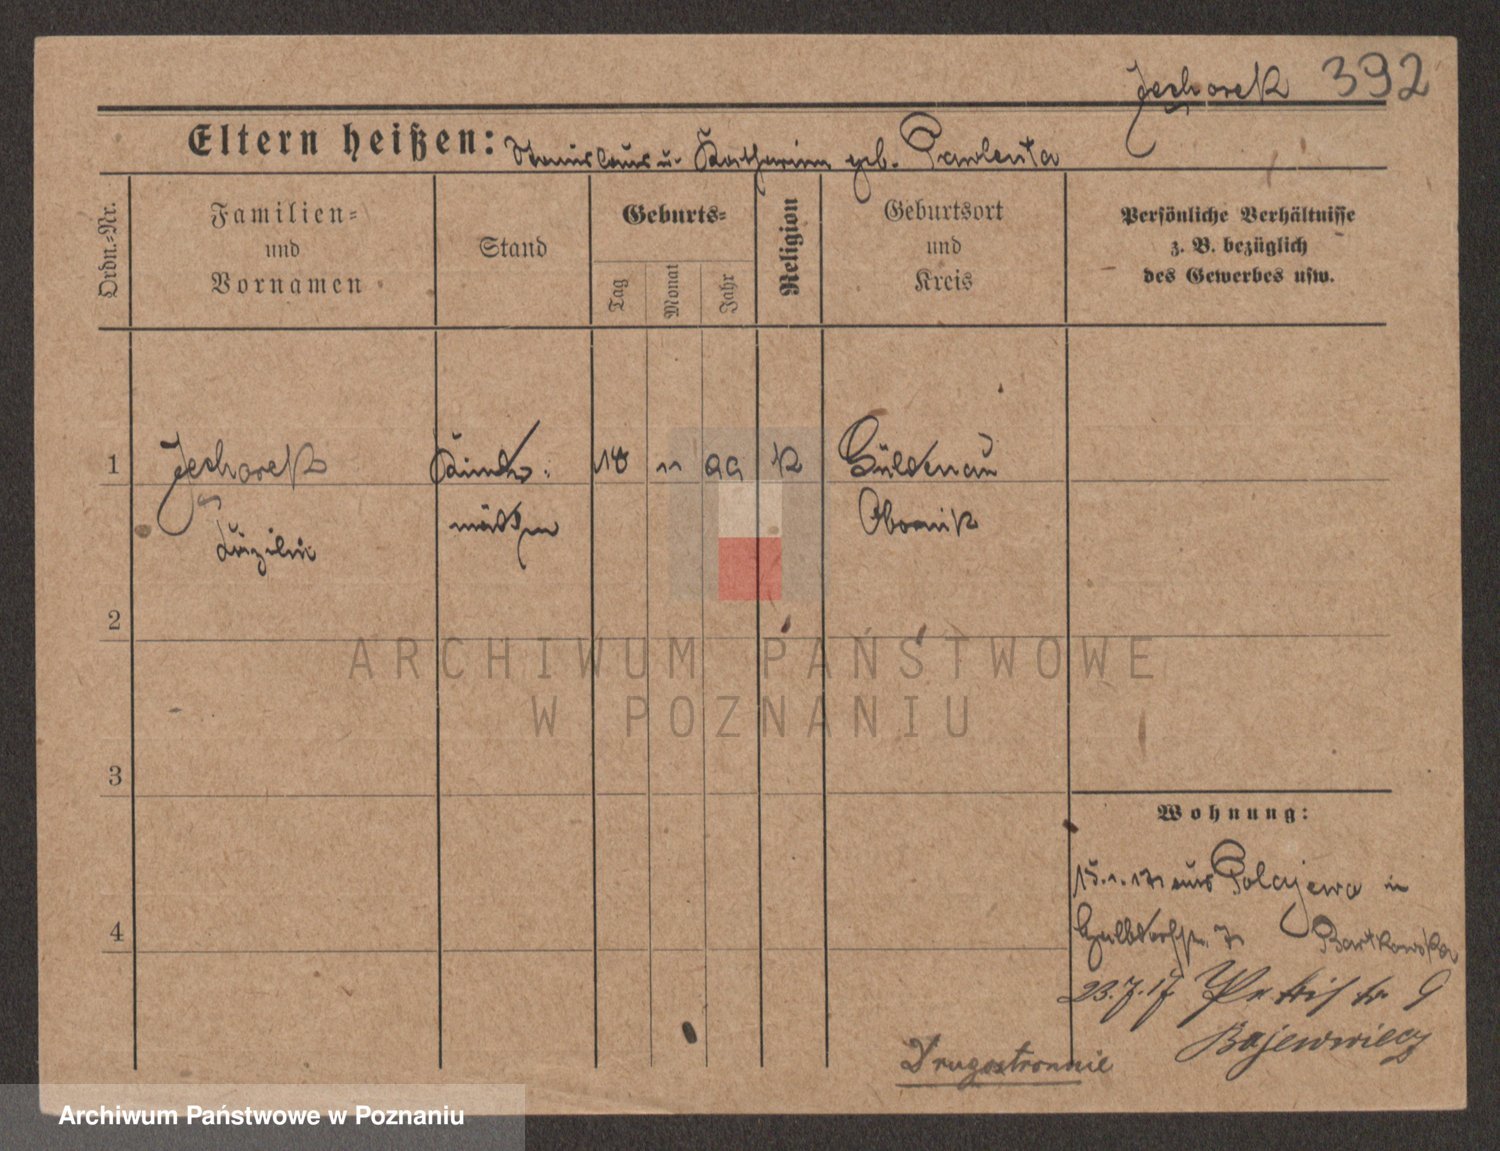 Jeshorek 392
Eltern heißen: Stanislaus u. Katharina geb. Pawlenta
Ordn.-Nr.
Familien-
und
Vornamen
Stand
Geburts-
Tag
Monat
Jahr
Religion
Geburtsort
und
Kreis
Persönliche Verhältnisse
z. B. bezüglich
des Gewerbes usw.
1 Jeshorek Kinder- 18 11 99 k Güldenau
Luzilie mädchen Obornik
2
3
4
Wohnung:
15.1.17 aus Polajewo in
7 Bartkowska
23.7.17 9
Bajerwicz
Drugostronnie
ARCHIWUM PAŃSTWOWE
W POZNANIU
Archiwum Państwowe w Poznaniu